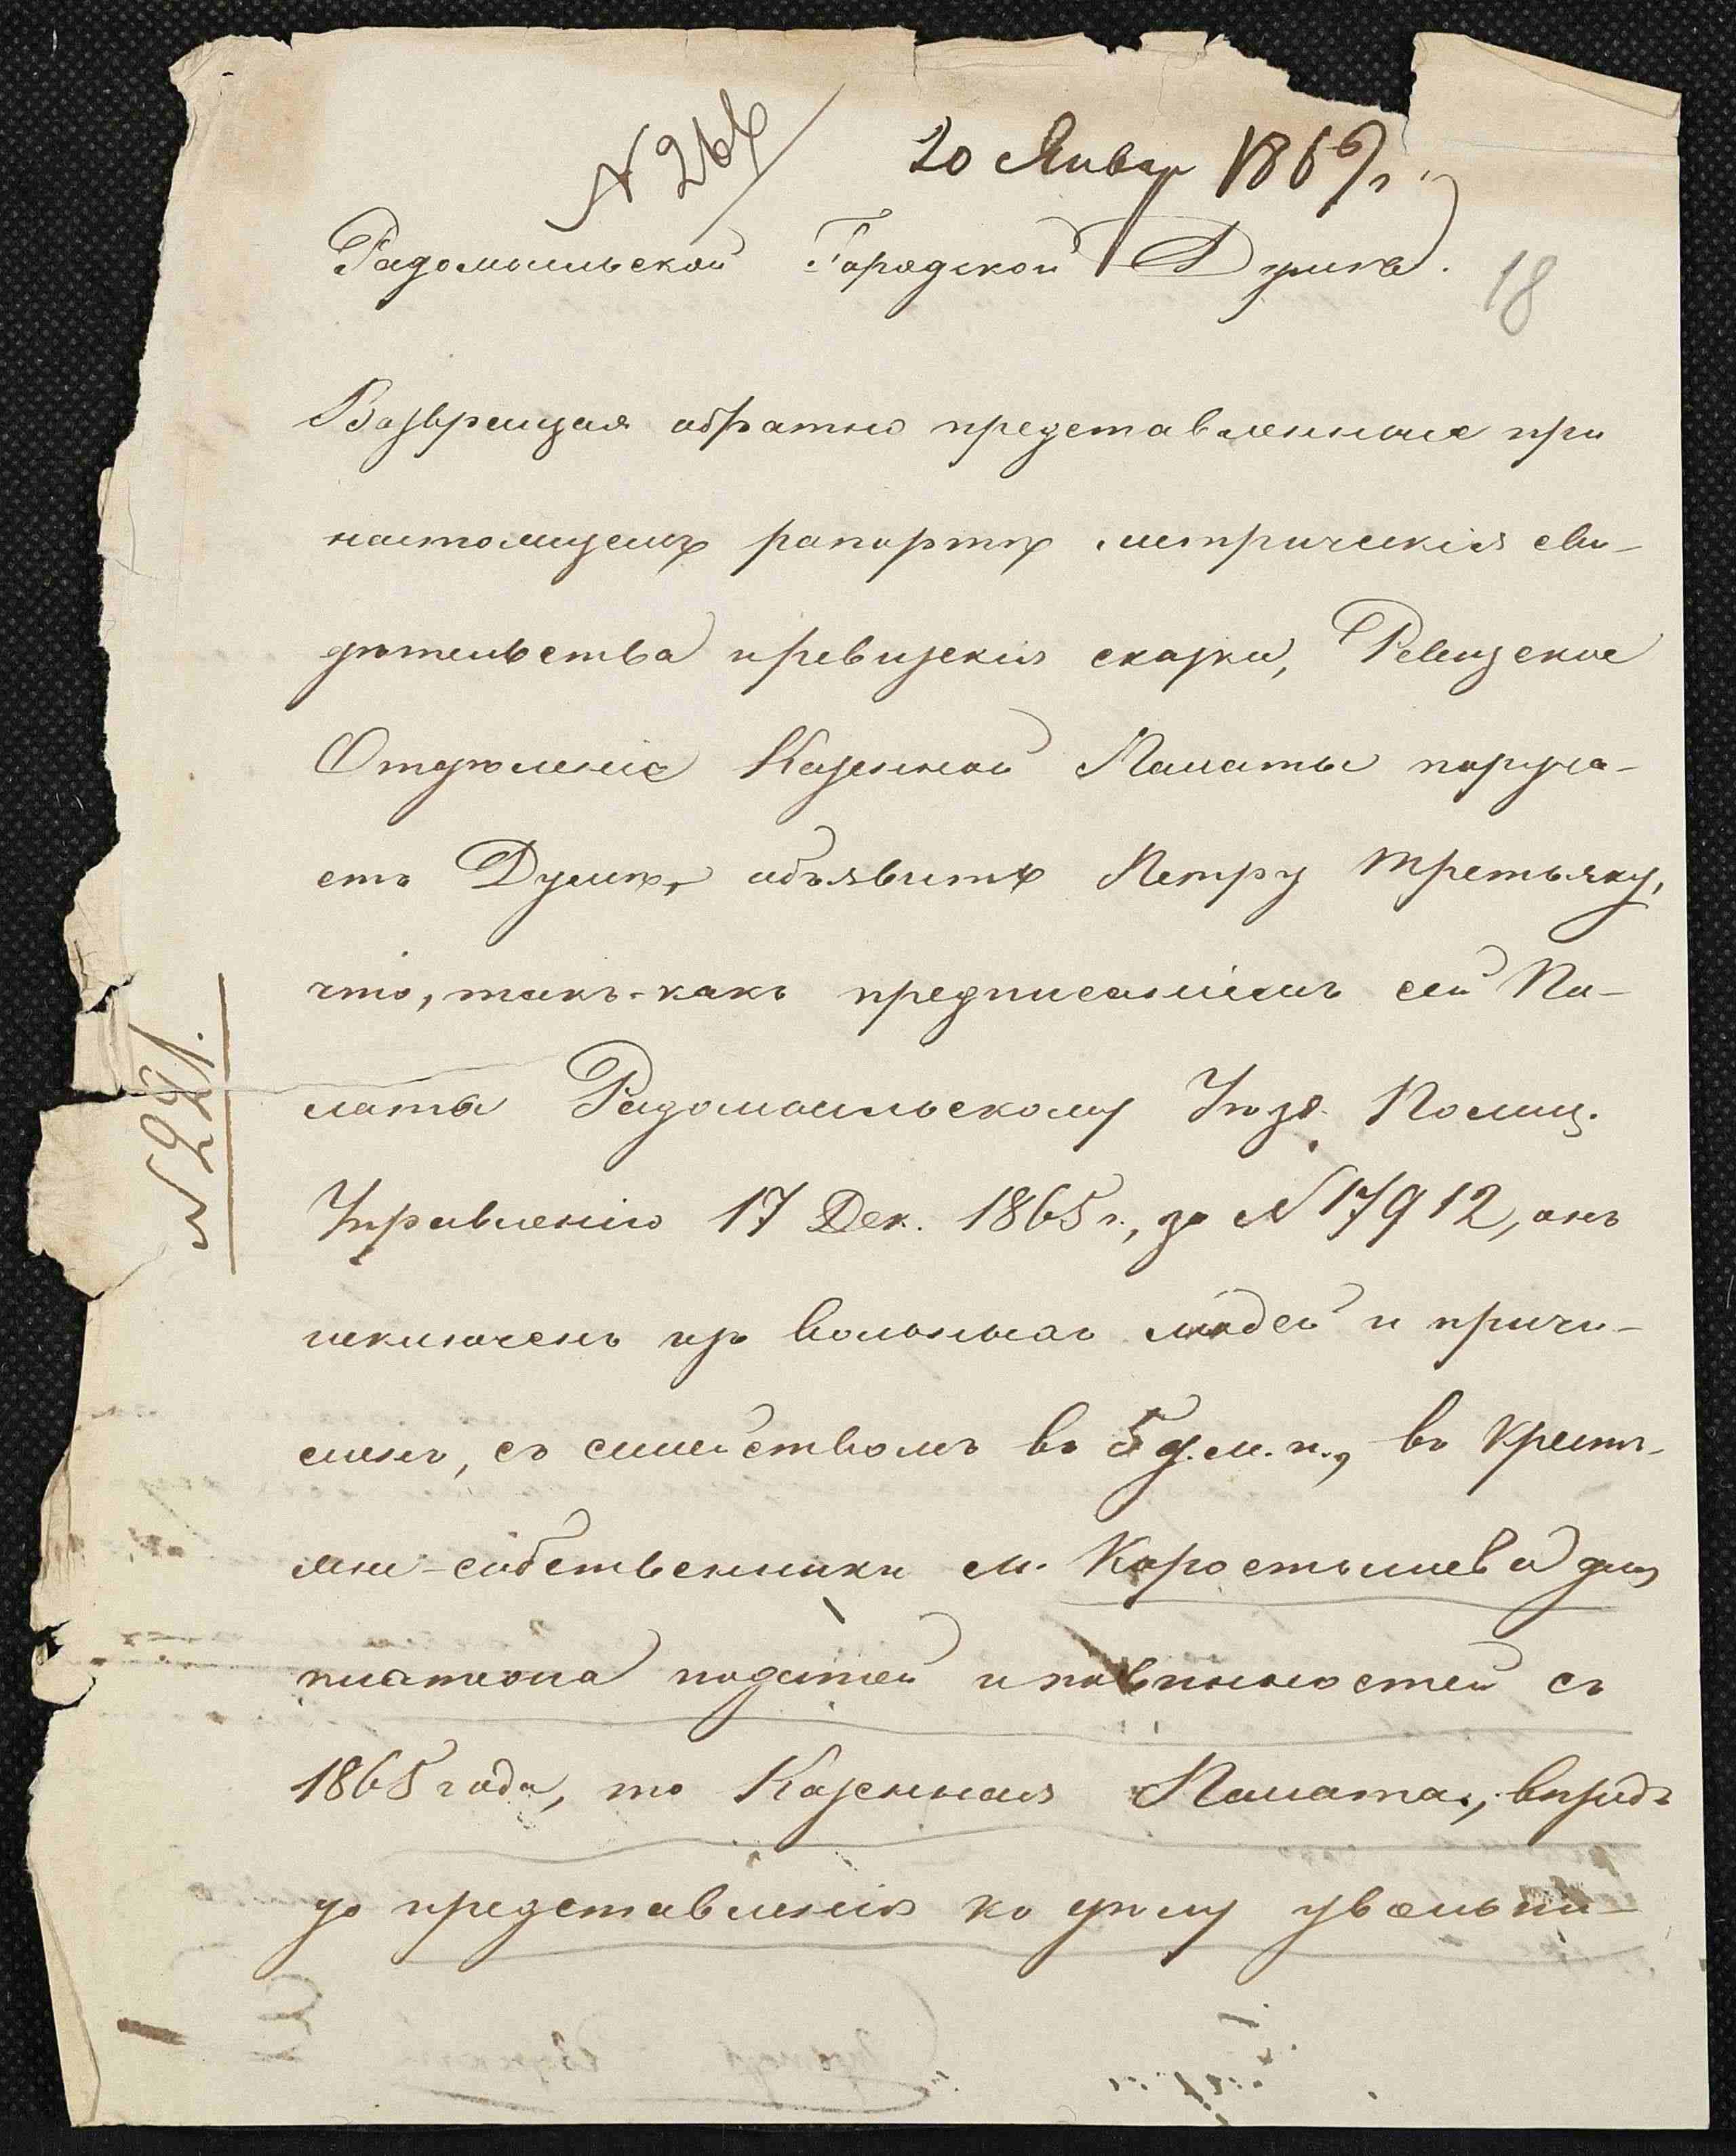 N 264
20 Январ 1869 г.
Радомысльской Городской Думѣ.
18
Возвращая обратно представленныя при
настоящемъ рапортѣ метрическія сви-
дѣтельства и ревизскія сказки, Ревизское
Отдѣленіе Казенной Палаты поруча-
етъ Думѣ, объявить Петру Третьяку,
что, такъ-какъ предписаніемъ сей Па-
латы Радомысльскому Уѣзд. Полиц.
Управленію 17 Дек. 1865 г., за N 17912, онъ
исключенъ изъ вольныхъ людей и причи-
сленъ, съ семействомъ въ 5 д. м. п., въ крестъ-
яне-собственники м. Коростышева для
платежа податей и повинностей съ
1865 года, то Казенная Палата, впредь
до представленія къ дѣлу увольни-
N 221.